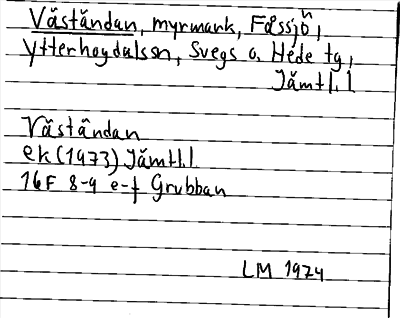 Väståndan, myrmark, Fåssjön,
Ytterhogdalssn, Svegs o. Hede tg,
Jämtl. l
Väståndan
ek (1973) Jämtl. l
16F 8-9 e-f Grubban
LM 1974